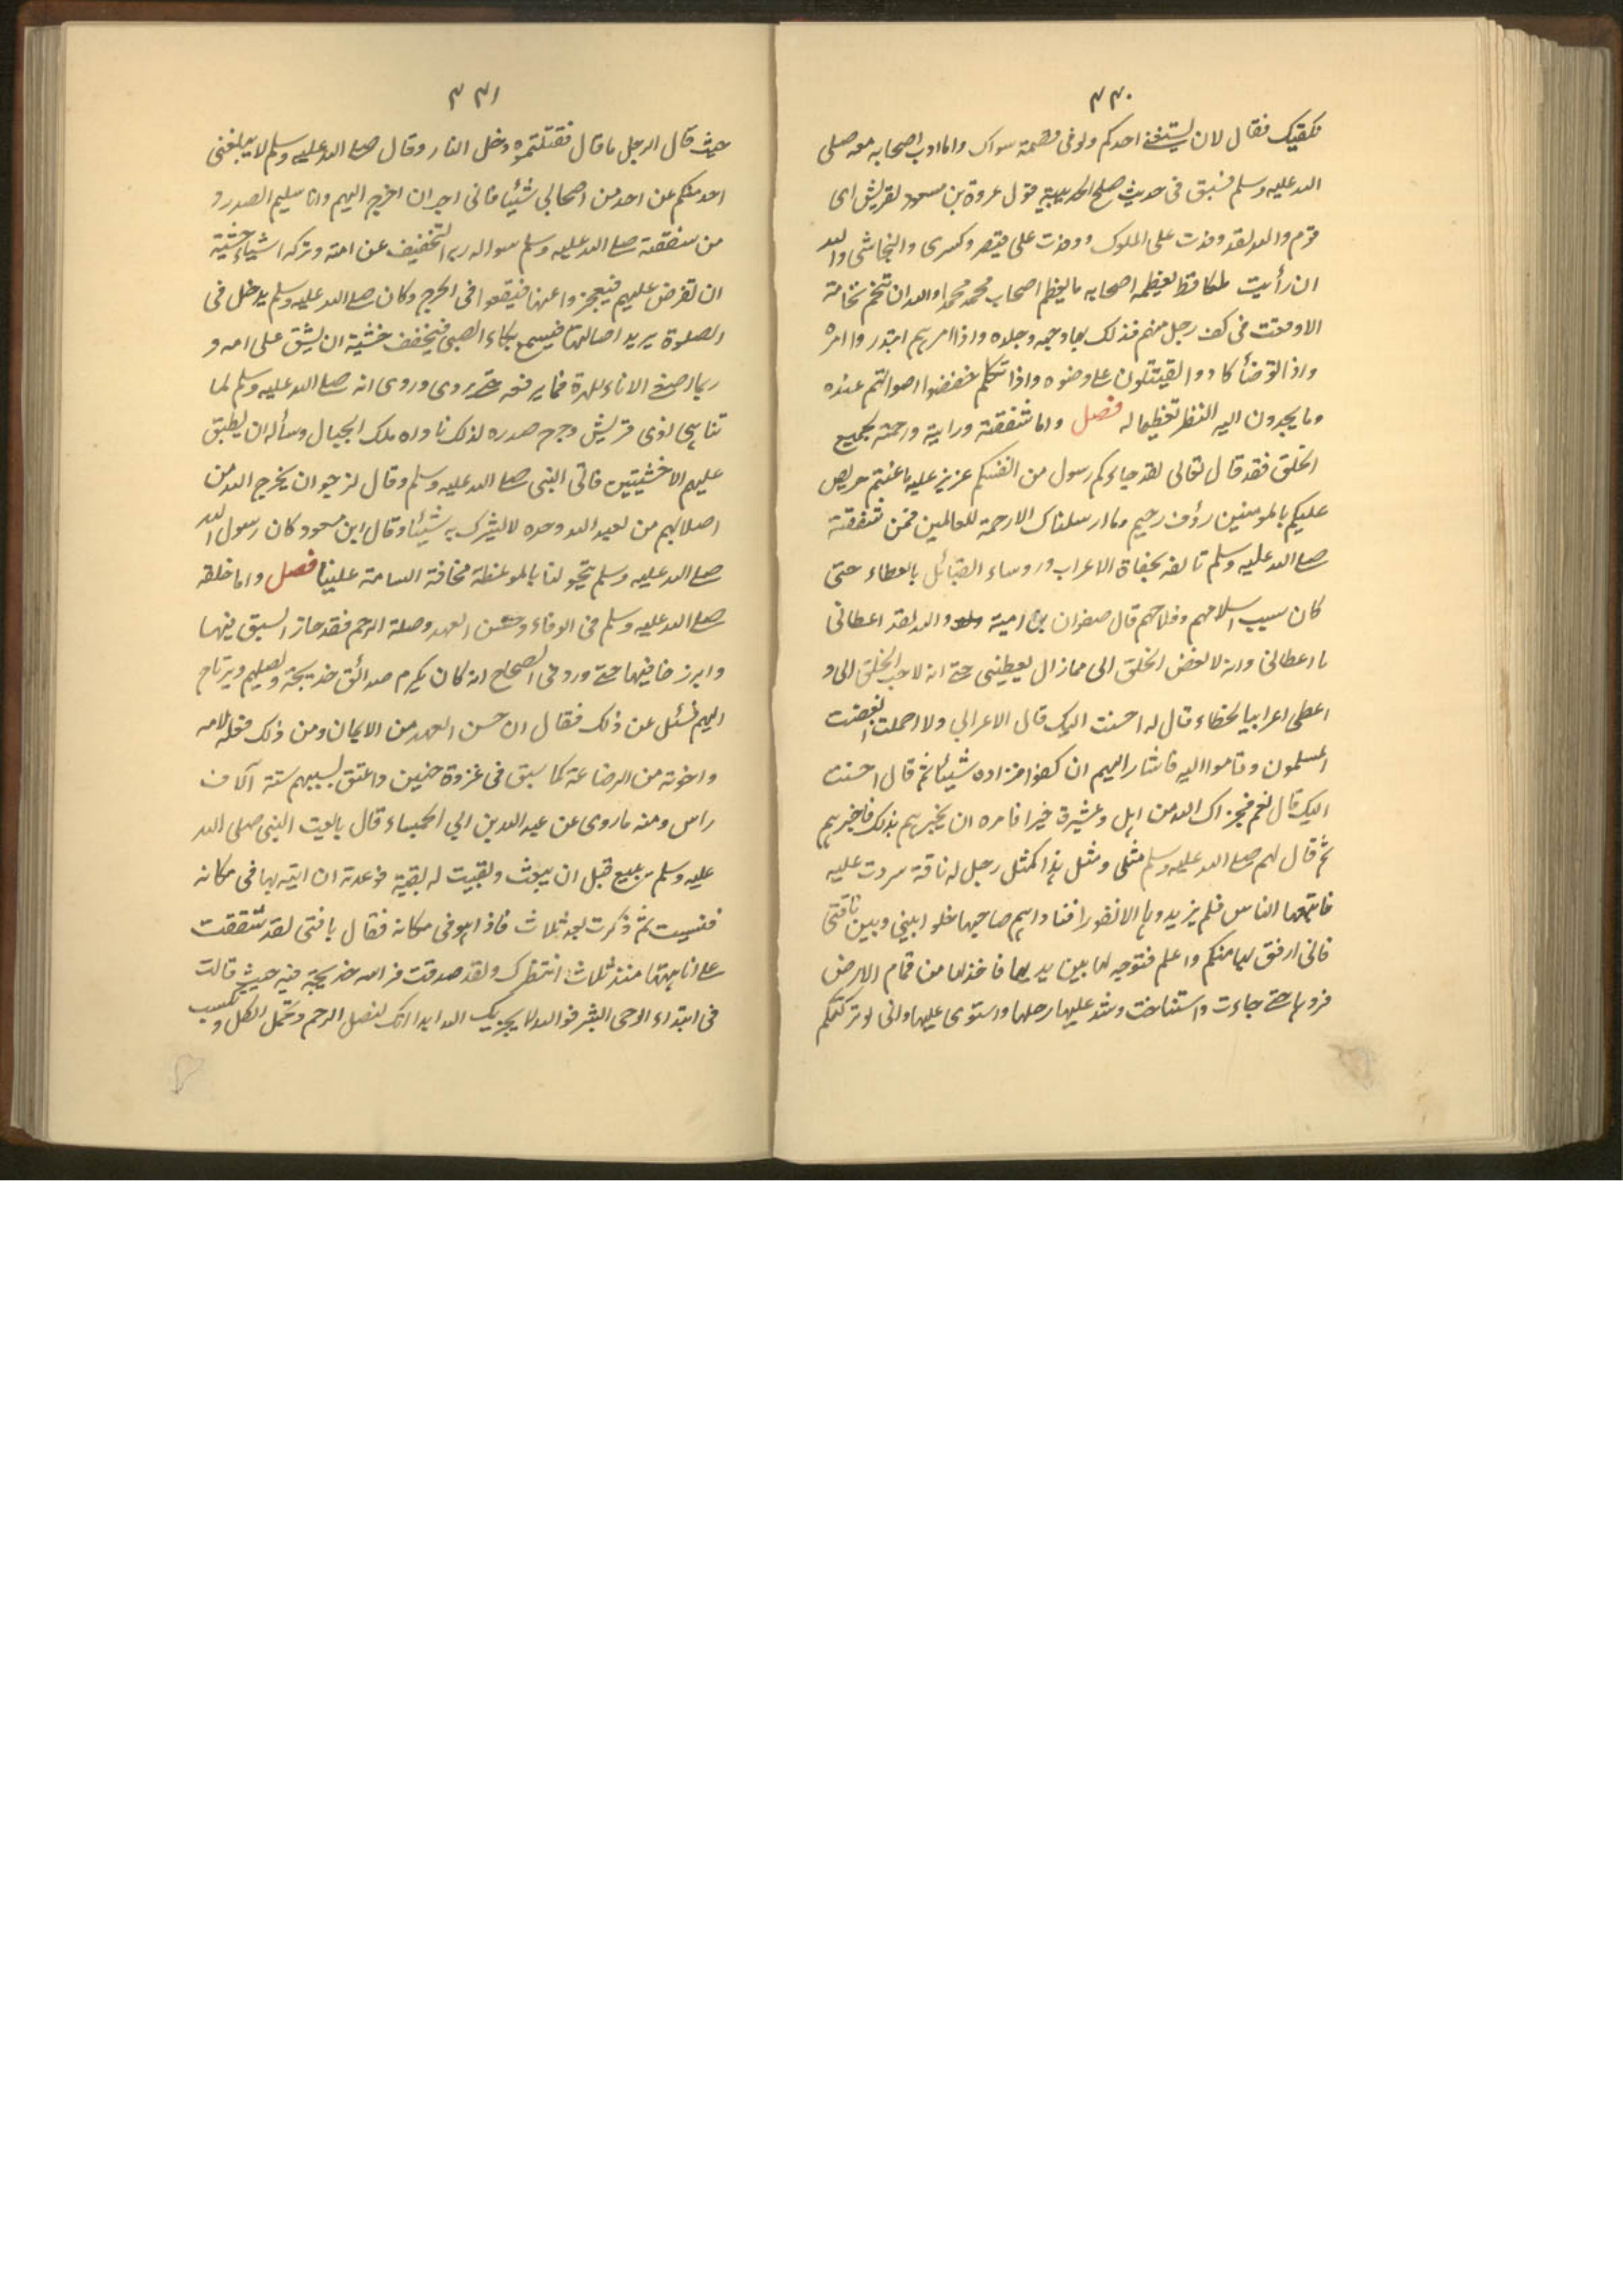 ٣٣٠
فقال لان يستغنى احدكم ولو فى قضمة سواك واما ادب اصحابه معه صلى
الله عليه وسلم فسبق فى حديث صلح الحديبية قول عروة بن مسعود لقريش اى
قوم والله لقد وفدت على الملوك ووفدت على قيصر وكسرى والنجاشى والله
ان رأيت ملكا قط يعظمه اصحابه ما يعظم اصحاب محمد محمدا والله ان تنخم نخامة
الا وقعت فى كف رجل منهم فدلك بها وجهه وجلده واذا امرهم ابتدروا امره
واذا توضأ كادوا يقتتلون على وضوءه واذا تكلم خفضوا اصواتهم عنده
وما يحدون اليه النظر تعظيما له فصل واما شفقته ورأفته ورحمته بجميع
الخلق فقد قال تعالى لقد جاءكم رسول من انفسكم عزيز عليه ما عنتم حريص
عليكم بالمومنين رؤف رحيم وما ارسلناك الا رحمة للعالمين فمن شفقته
صلى الله عليه وسلم تالفه بجفاة الاعراب وروساء القبائل بالعطاء حتى
كان سبب اسلامهم وفلاحهم قال صفوان بن امية والله لقد اعطانى
ما اعطانى وانه لابغض الخلق الى فما زال يعطينى حتى انه لاحب الخلق الى و
اعطى اعرابيا عطاء قال له احسنت اليك قال الاعرابى ولا اجملت فغضب
المسلمون وقاموا اليه فاشار اليهم ان كفوا فزاده شيئا ثم قال احسنت
اليك قال نعم فجزاك الله من اهل وعشيرة خيرا فامره ان يخبرهم بذلك فاخبرهم
ثم قال لهم صلى الله عليه وسلم مثلى ومثل هذا كمثل رجل له ناقة شردت عليه
فاتبعها الناس فلم يزيدوها الا نفورا فناداهم صاحبها خلوا بينى وبين ناقتى
فانى ارفق بها منكم واعلم فتوجه لها بين يديها فاخذ لها من قمام الارض
فردها حتى جاءت واستناخت وشد عليها رحلها واستوى عليها وانى لو تركتكم
٣٣١
حيث قال الرجل ما قال فقتلتموه دخل النار وقال صلى الله عليه وسلم لا يبلغنى
احد منكم عن احد من اصحابى شيئا فانى احب ان اخرج اليهم وانا سليم الصدر و
من شفقته صلى الله عليه وسلم سواله ربه التخفيف عن امته وتركه اشياء خشية
ان تفرض عليهم فيعجزوا عنها فيقعوا فى الحرج وكان صلى الله عليه وسلم يدخل فى
الصلوة يريد اطالتها فيسمع بكاء الصبى فيخفف خشية ان يشق على امه و
ربما اصغى الاناء للهرة فما يرفعه حتى تروى وروى انه صلى الله عليه وسلم لما
تناهى اذى قريش وحرج صدره لذلك ناداه ملك الجبال وسأله ان يطبق
عليهم الاخشبين فابى النبى صلى الله عليه وسلم وقال نرجو ان يخرج الله من
اصلابهم من يعبد الله وحده لا يشرك به شيئا وقال ابن مسعود كان رسول الله
صلى الله عليه وسلم يتخولنا بالموعظة مخافة السامة علينا فصل واما خلقه
صلى الله عليه وسلم فى الوفاء وحسن العهد وصلة الرحم فقد حاز السبق فيها
وابرز خافيها حتى ورد فى الصحاح انه كان يكرم صدائق خديجة ويصلهم ويرتاح
اليهم فسئل عن ذلك فقال ان حسن العهد من الايمان ومن ذلك فعله لامه
واخوته من الرضاعة كما سبق فى غزوة حنين واعتق بسببهم ستة آلاف
راس ومنه ما روى عن عبد الله بن ابى الحمساء قال بايعت النبى صلى الله
عليه وسلم ببيع قبل ان يبعث وبقيت له بقية فوعدته ان اتيه بها فى مكانه
فنسيت ثم ذكرت بعد ثلاث فاذا هو فى مكانه فقال يا فتى لقد شققت
على انا ههنا منذ ثلاث انتظرك ولقد صدقت فراسة خديجة فيه حيث قالت
فى ابتداء الوحى ابشر فوالله لا يخزيك الله ابدا انك لتصل الرحم وتحمل الكل وتكسب